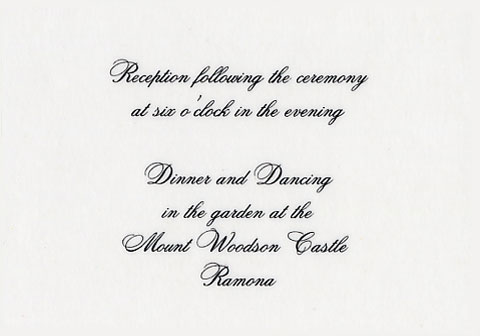 Reception following the ceremony
at six o'clock in the evening
Dinner and Dancing
in the garden at the
Mount Woodson Castle
Ramona